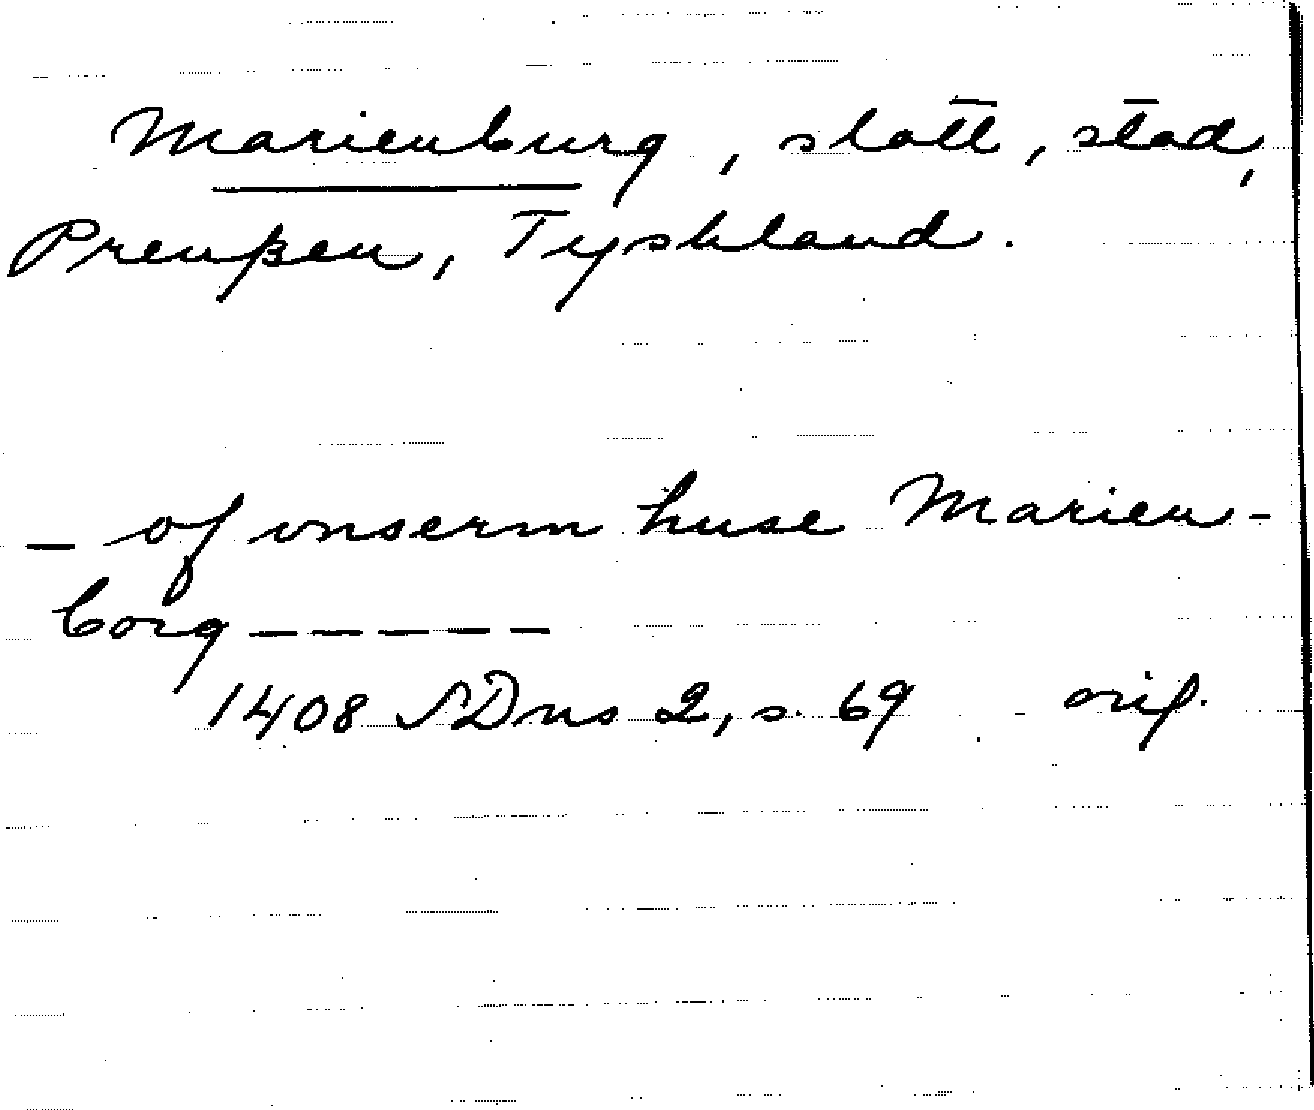 Marienburg, slott, stad,
Preußen, Tyskland.
— of vnserm huse Marien-
borg — — — — —
1408 SDns 2, s. 69 orig.